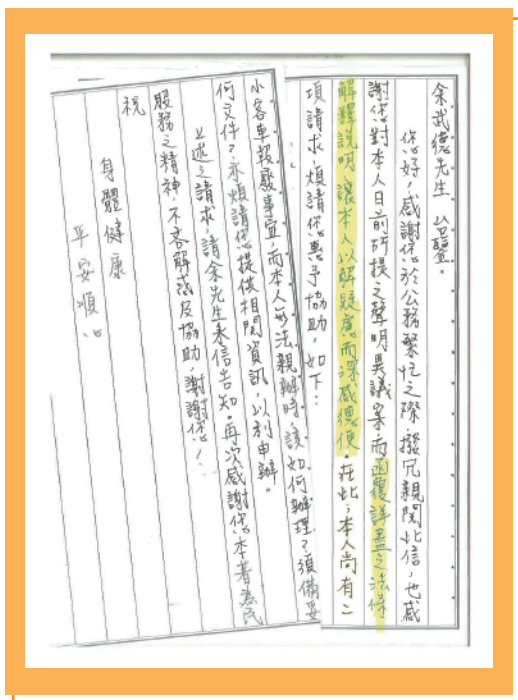 余武德先生 台鑒。
您好，感謝您於公務繁忙之際，撥冗親閱此信，也感
謝您對本人日前所提之聲明異議案而函覆詳盡之法條
解釋說明，讓本人以解疑慮而深感德便。在此，本人尚有二
項請求，煩請您惠予協助，如下：
小客車報廢事宜，而本人無法親辦時，該如何辦理？須備妥
何文件？亦煩請您提供相關資訊，以利申辦。
上述之請求，請余先生來信告知。再次感謝您本著為民
服務之精神，不吝解惑及協助，謝謝您！
祝
身體健康
平安順心